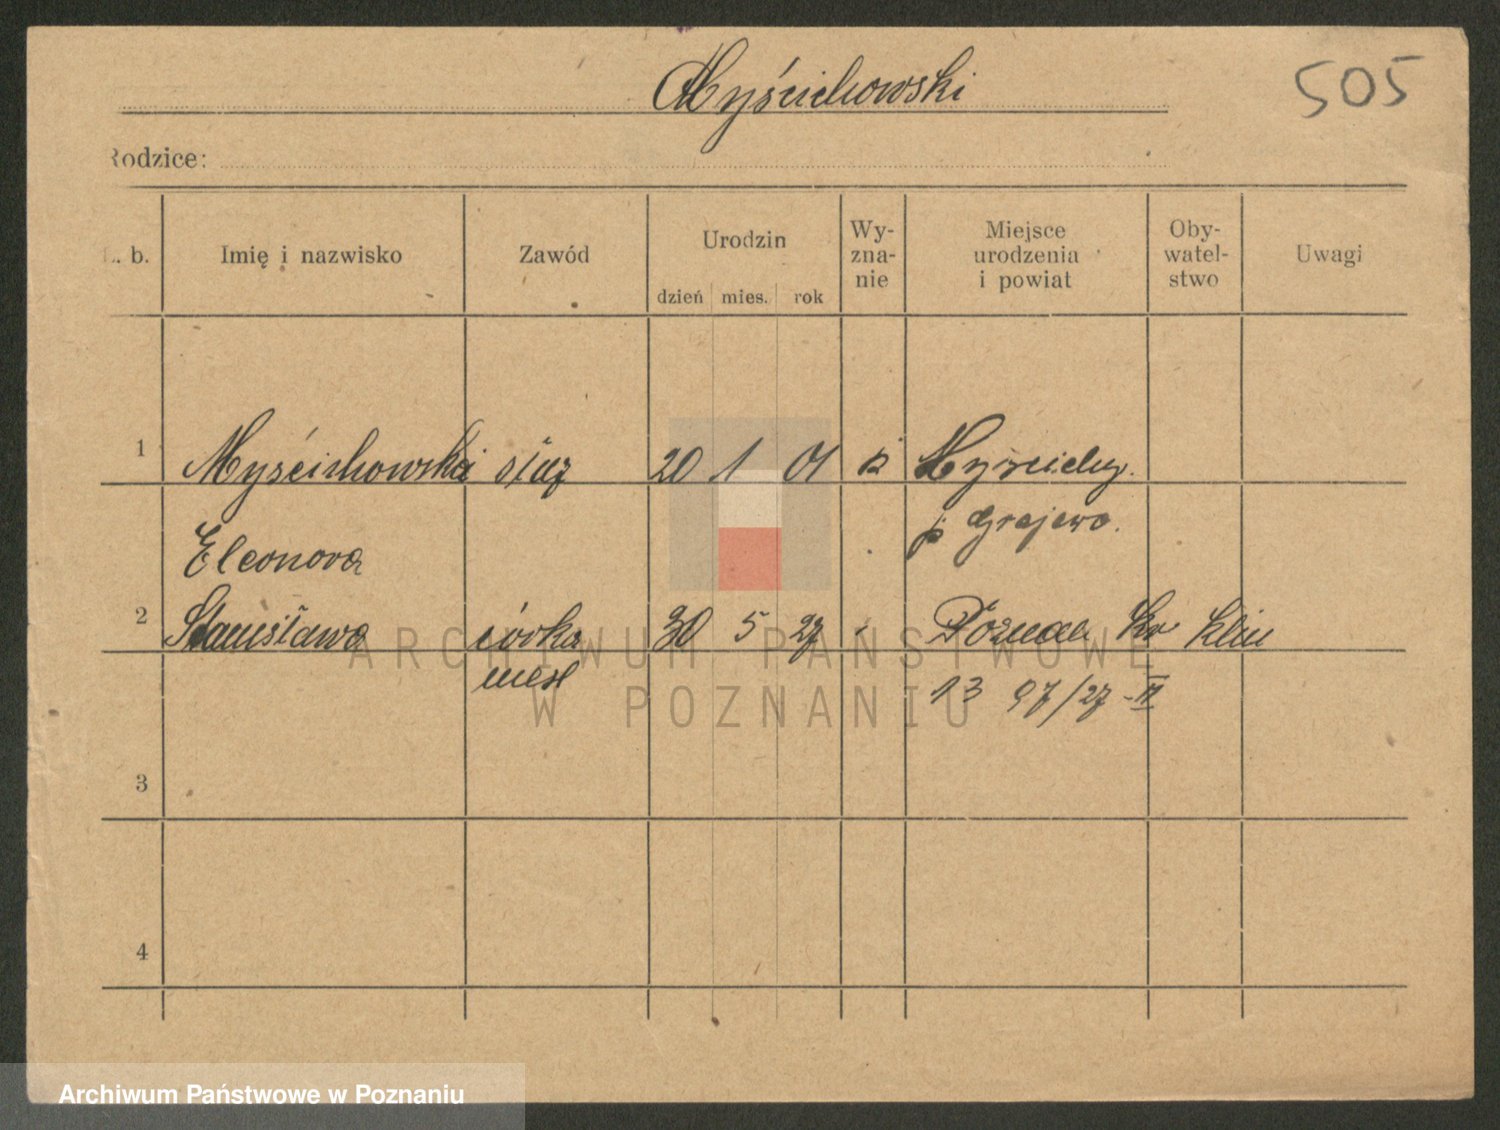 Myścichowski
505
Rodzice:
L. b.
Imię i nazwisko
Zawód
Urodzin
dzień mies. rok
Wy-
zna-
nie
Miejsce
urodzenia
i powiat
Oby-
watel-
stwo
Uwagi
1 Myścichowska służ 20 1 01 k Myścichy.
Eleonora p Grajewo.
2 Stanisława córka 30 5 27 Poznań
nieśl 13 97/27 - II
3
4
ARCHIWUM PAŃSTWOWE
W POZNANIU
Archiwum Państwowe w Poznaniu